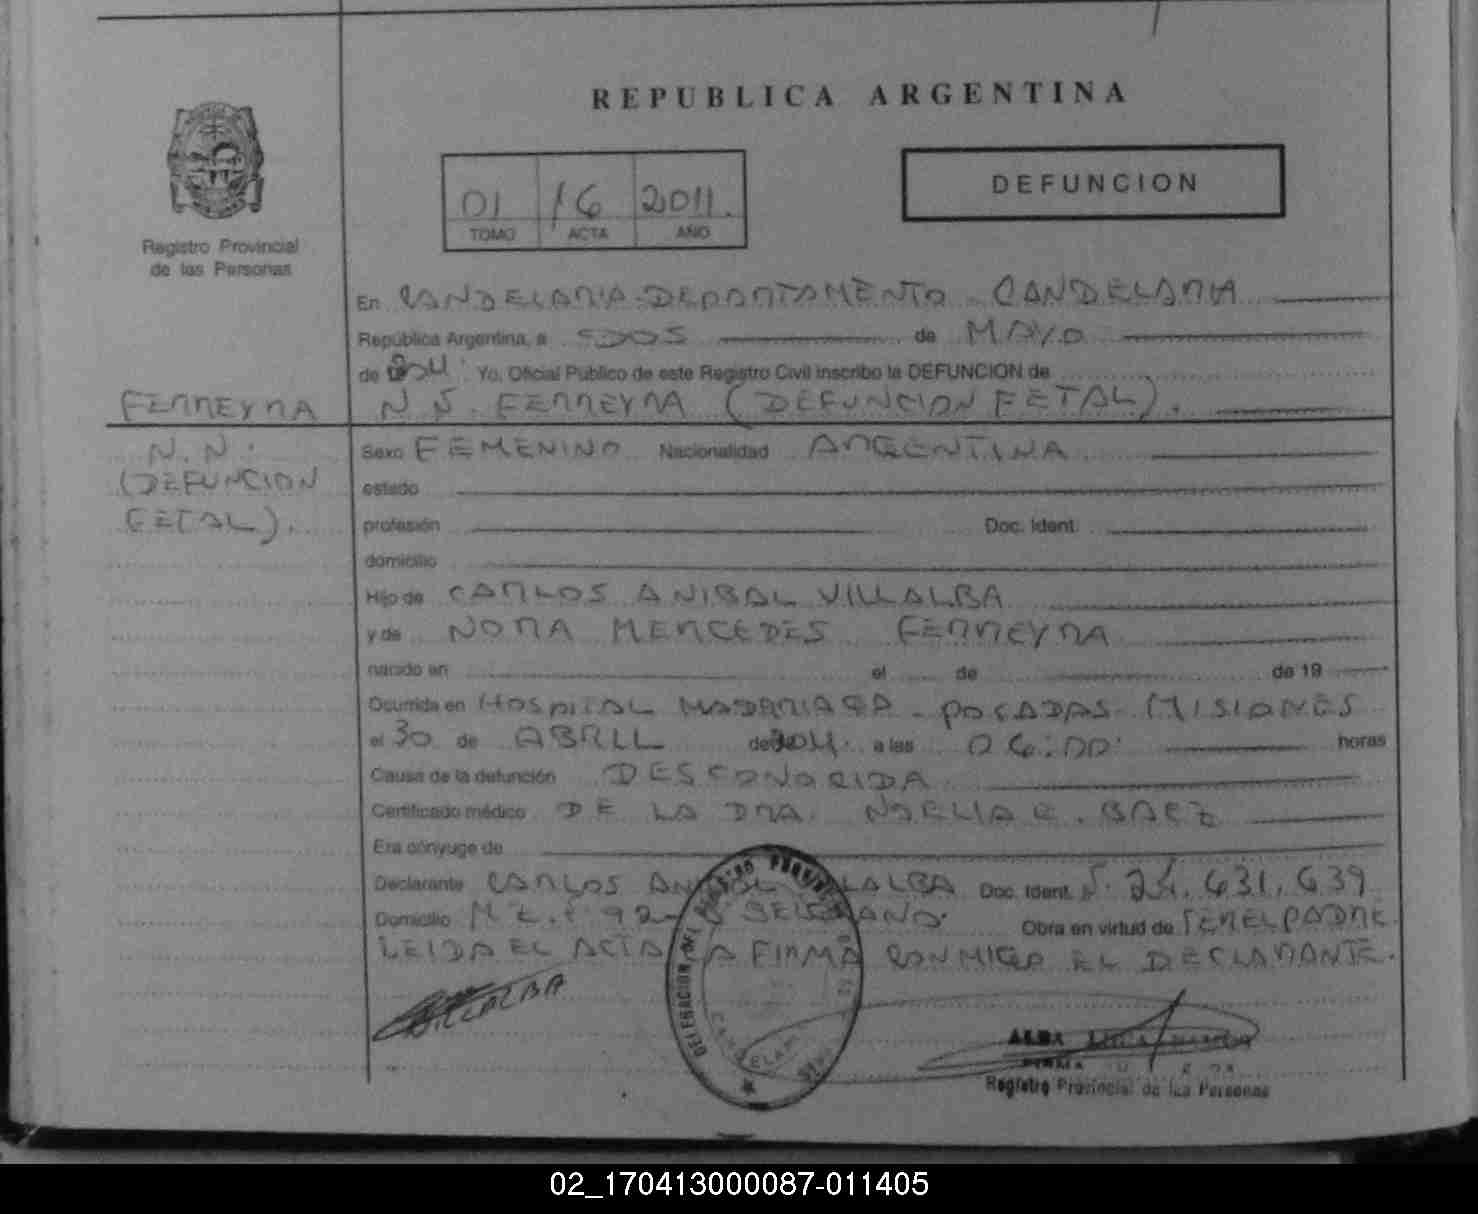 REPUBLICA ARGENTINA
DEFUNCION
01 16 2011.
TOMO ACTA AÑO
Registro Provincial
de las Personas
En CANDELARIA-DEPARTAMENTO-CANDELARIA
República Argentina, a DOS de MAYO
de 2011. Yo, Oficial Público de este Registro Civil inscribo la DEFUNCION de
FERREYRA N.N. FERREYRA (DEFUNCION FETAL).
N.N. Sexo FEMENINO Nacionalidad ARGENTINA
(DEFUNCION estado
FETAL). profesión Doc. Ident.
domicilio
Hijo de CARLOS ANIBAL VILLALBA
y de NORA MERCEDES FERREYRA
nacido en el de de 19
Ocurrida en HOSPITAL MADARIAGA-POSADAS-MISIONES
el 30 de ABRIL de 2011. a las 06:00 horas
Causa de la defunción DESCONOCIDA
Certificado médico DE LA DRA. NOELIA E. BAEZ
Era cónyuge de
Declarante CARLOS ANIBAL VILLALBA Doc. Ident. N. 24.631.639
Domicilio BELGRANO. Obra en virtud de SER EL PADRE.
LEIDA EL ACTA LA FIRMA CONMIGO EL DECLARANTE.
VILLALBA
DELEGACION DEL
CANDELARIA
ALBA
Registro Provincial de las Personas
02_170413000087-011405